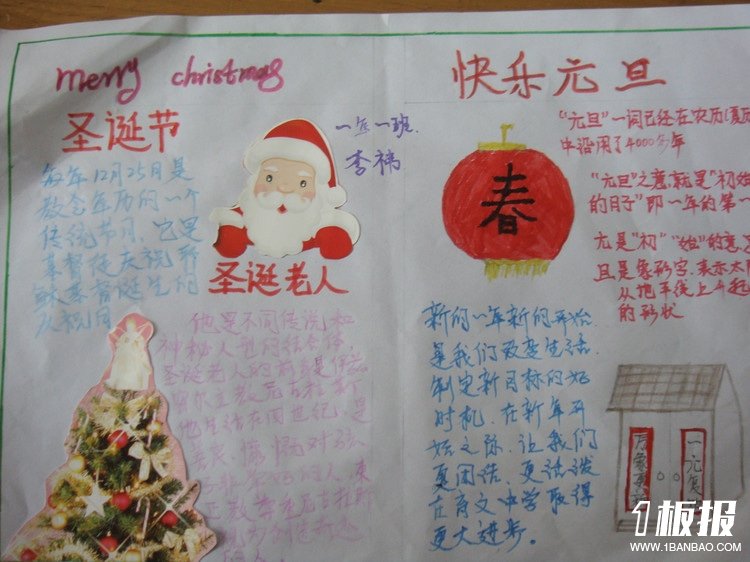 merry christmas
圣诞节
每年12月25日是
教会年历的一个
传统节日,它是
基督徒庆祝耶
稣基督诞生的
庆祝日
一年一班.
李祎
圣诞老人
他是不同传说和
神秘人物的结合体,
圣诞老人的前身是
他生活在四世纪,是
慷慨对
快乐元旦
春
“元旦”一词已经在农历(夏历)
中沿用了4000多年
“元旦”之意,就是“初始
的日子”即一年的第一
元是“初”“始”的意
旦是象形字,表示太
从地平线上升起
的形状
新的一年新的开始
是我们改变生活
制定新目标的好
时机,在新年开
始之际,让我们
更团结,更活泼
在育文中学取得
更大进步。
万象更
一元复
1板报
WWW.1BANBAO.COM